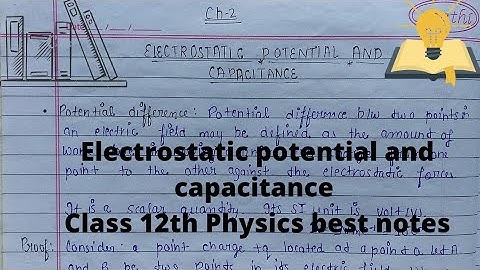 Ch-2
ELECTROSTATIC POTENTIAL AND
CAPACITANCE
Potential difference: Potential difference b/w two points in
an electric field may be defined as the amount of
Electrostatic potential and
capacitance
point to the other against the electrostatic forces
Class 12th Physics best notes
It is a scalar quantity. Its SI unit is volt (v).
Proof: Consider: a point charge +q located at a point o. Let A
and B be two points in its electric field